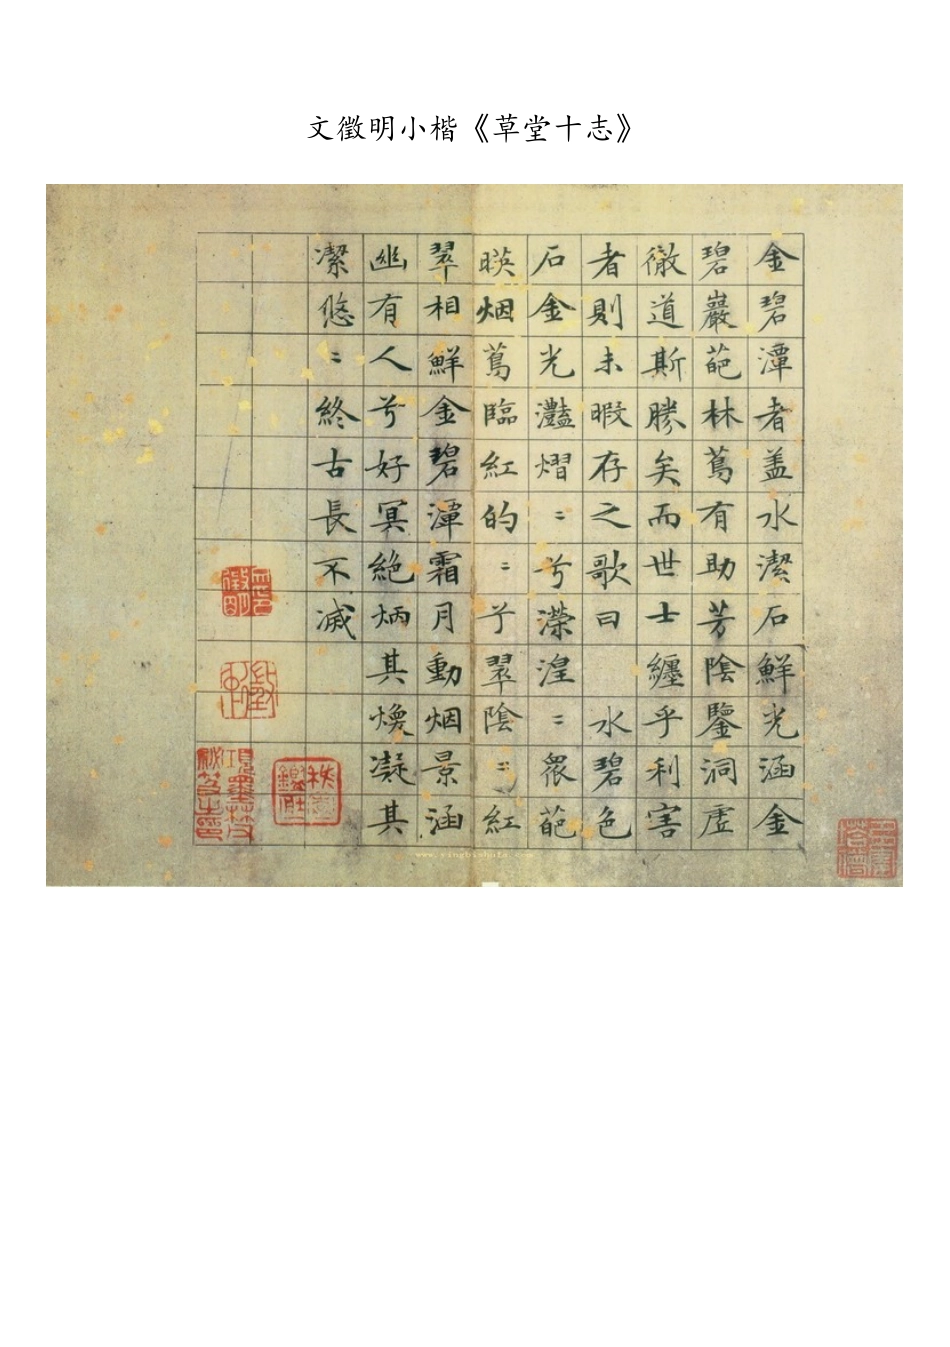 文徵明小楷《草堂十志》
金碧潭者盖水潔石鮮光涵金
碧巖葩林蔦有助芳陰鑒洞虛
徹道斯勝矣而世士纏乎利害
者則未暇存之歌曰 水碧色
石金光灩熠〻兮濴湟〻衆葩
暎烟蔦臨紅的〻兮翠陰〻紅
翠相鮮金碧潭霜月動烟景涵
幽有人兮好冥絶炳其煥凝其
潔悠〻終古長不减